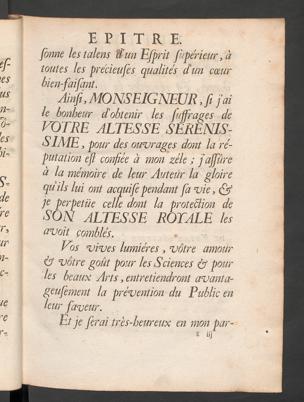 EPITRE.
sonne les talens d'un Esprit supérieur, à
toutes les précieuses qualités d'un cœur
bien-faisant.
Ainsi, MONSEIGNEUR, si j'ai
le bonheur d'obtenir les suffrages de
VOTRE ALTESSE SERENIS-
SIME, pour des ouvrages dont la ré-
putation est confiée à mon zéle ; j'assûre
à la mémoire de leur Auteur la gloire
qu'ils lui ont acquise pendant sa vie, &
je perpetüe celle dont la protection de
SON ALTESSE ROYALE les
avoit comblés.
Vos vives lumiéres, vôtre amour
& vôtre goût pour les Sciences & pour
les beaux Arts, entretiendront avanta-
geusement la prévention du Public en
leur faveur.
Et je serai très-heureux en mon par-
iij